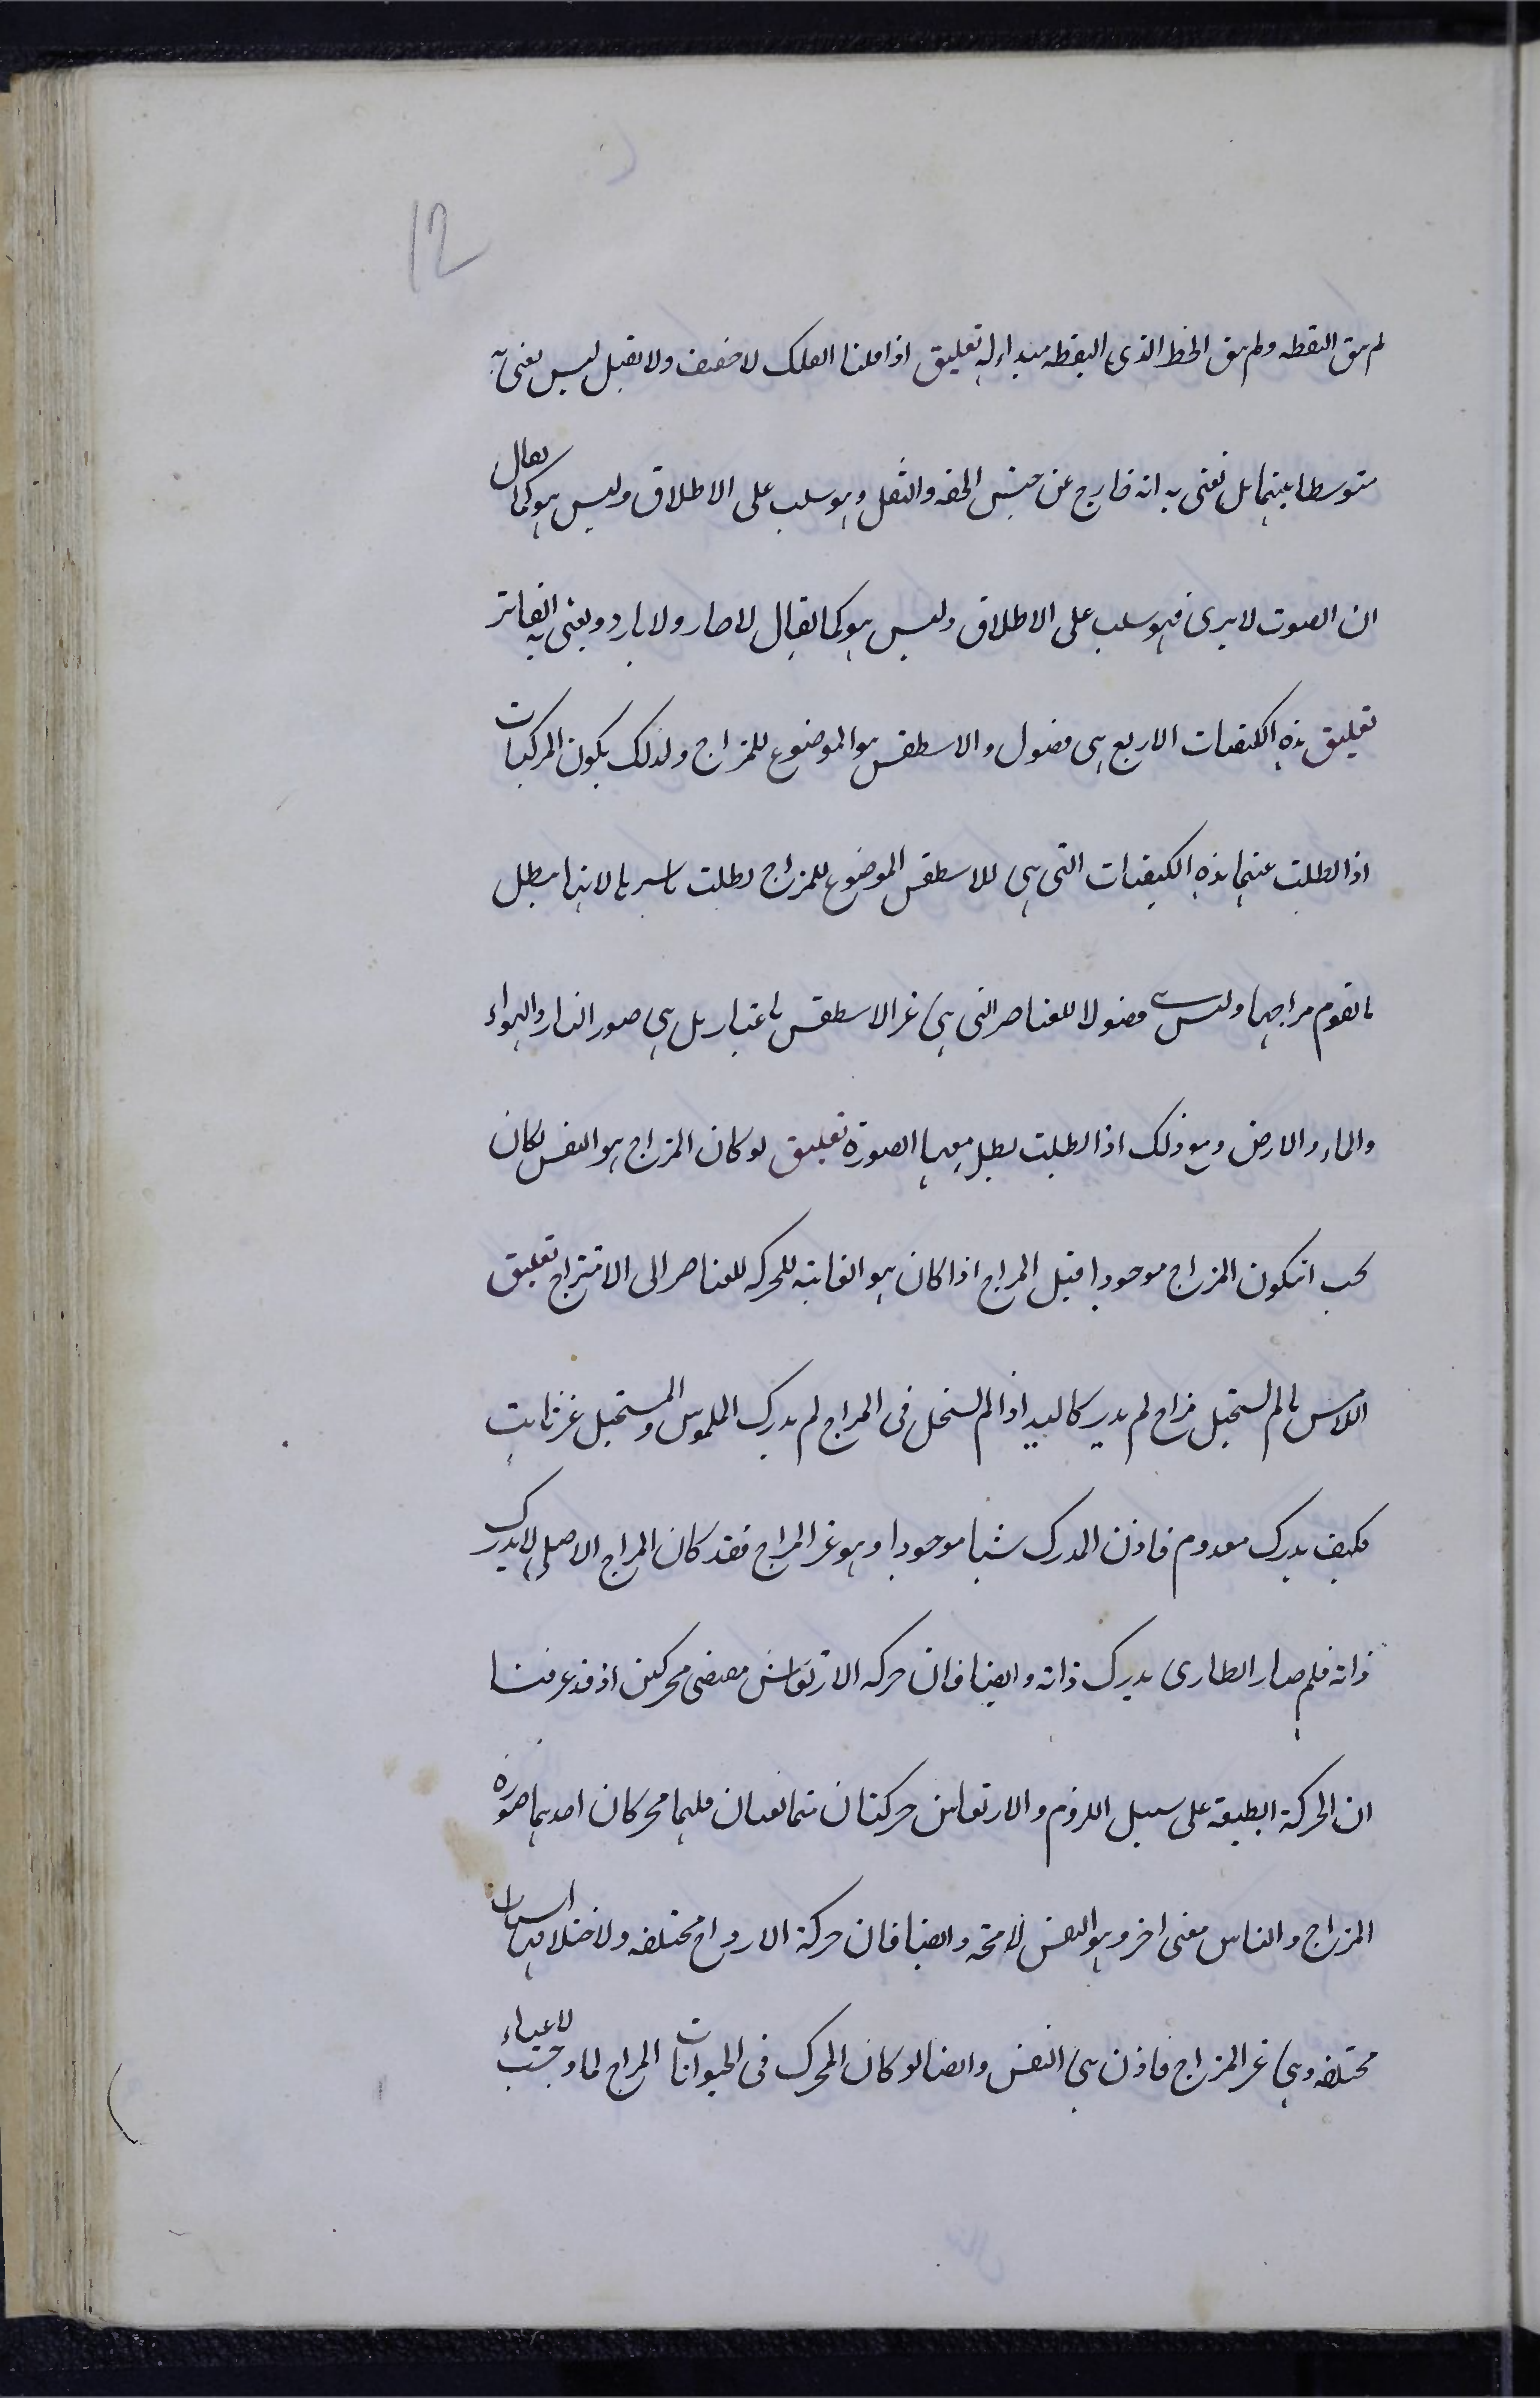 12
لم يبق النقطه ولم يبق الخط الذي النقطه مبداء له تعليق اذا قلنا الفلك لا خفيف ولا ثقيل ليس نعني به
متوسطا بينهما بل نعني به انه خارج عن جنس الخفه والثقل وهو سلب على الاطلاق وليس هو كما يقال
ان الصوت لا يرى فهو سلب على الاطلاق وليس هو كما يقال لا حار ولا بارد ويعني به الفاتر
تعليق هذه الكيفيات الاربع هي فصول والاسطقس هو الموضوع للمزاج ولذلك يكون المركبات
اذا بطلت عنهما هذه الكيفيات التي هي للاسطقس الموضوع للمزاج بطلت باسرها لانها يبطل
ما تقوم مزاجها وليست فصولا للعناصر التي هي غير الاسطقس باعتبار بل هي صور النار والهواء
والماء والارض ومع ذلك اذا بطلت بطل معها الصورة تعليق لو كان المزاج هو النفس لكان
يجب ان يكون المزاج موجودا قبل المزاج اذا كان هو الغاية للحركه للعناصر الى الامتزاج تعليق
اللامس ما لم يستحيل مزاج لم يدرك اذا لم يستحل في المزاج لم يدرك الملموس والمستحيل غير ثابت
فكيف يدرك معدوم فاذن المدرك شيا موجودا وهو غير المزاج فقد كان المزاج الاصلي لا يدرك
ذاته فلم صار الطارى يدرك ذاته وايضا فان حركه الارتعاش مقتضى محركين اذ قد عرفنا
ان الحركة الطبيعة على سبيل اللزوم والارتعاش حركتان متمانعتان فلهما محركان احدهما صورة
المزاج والثاني معنى اخر وهو النفس لا محه وايضا فان حركة الارواح مختلفه ولاختلافها اسباب
مختلفه وهي غير المزاج فاذن هي النفس وايضا لو كان المحرك في الحيوانات المزاج لما وجب لاعياء